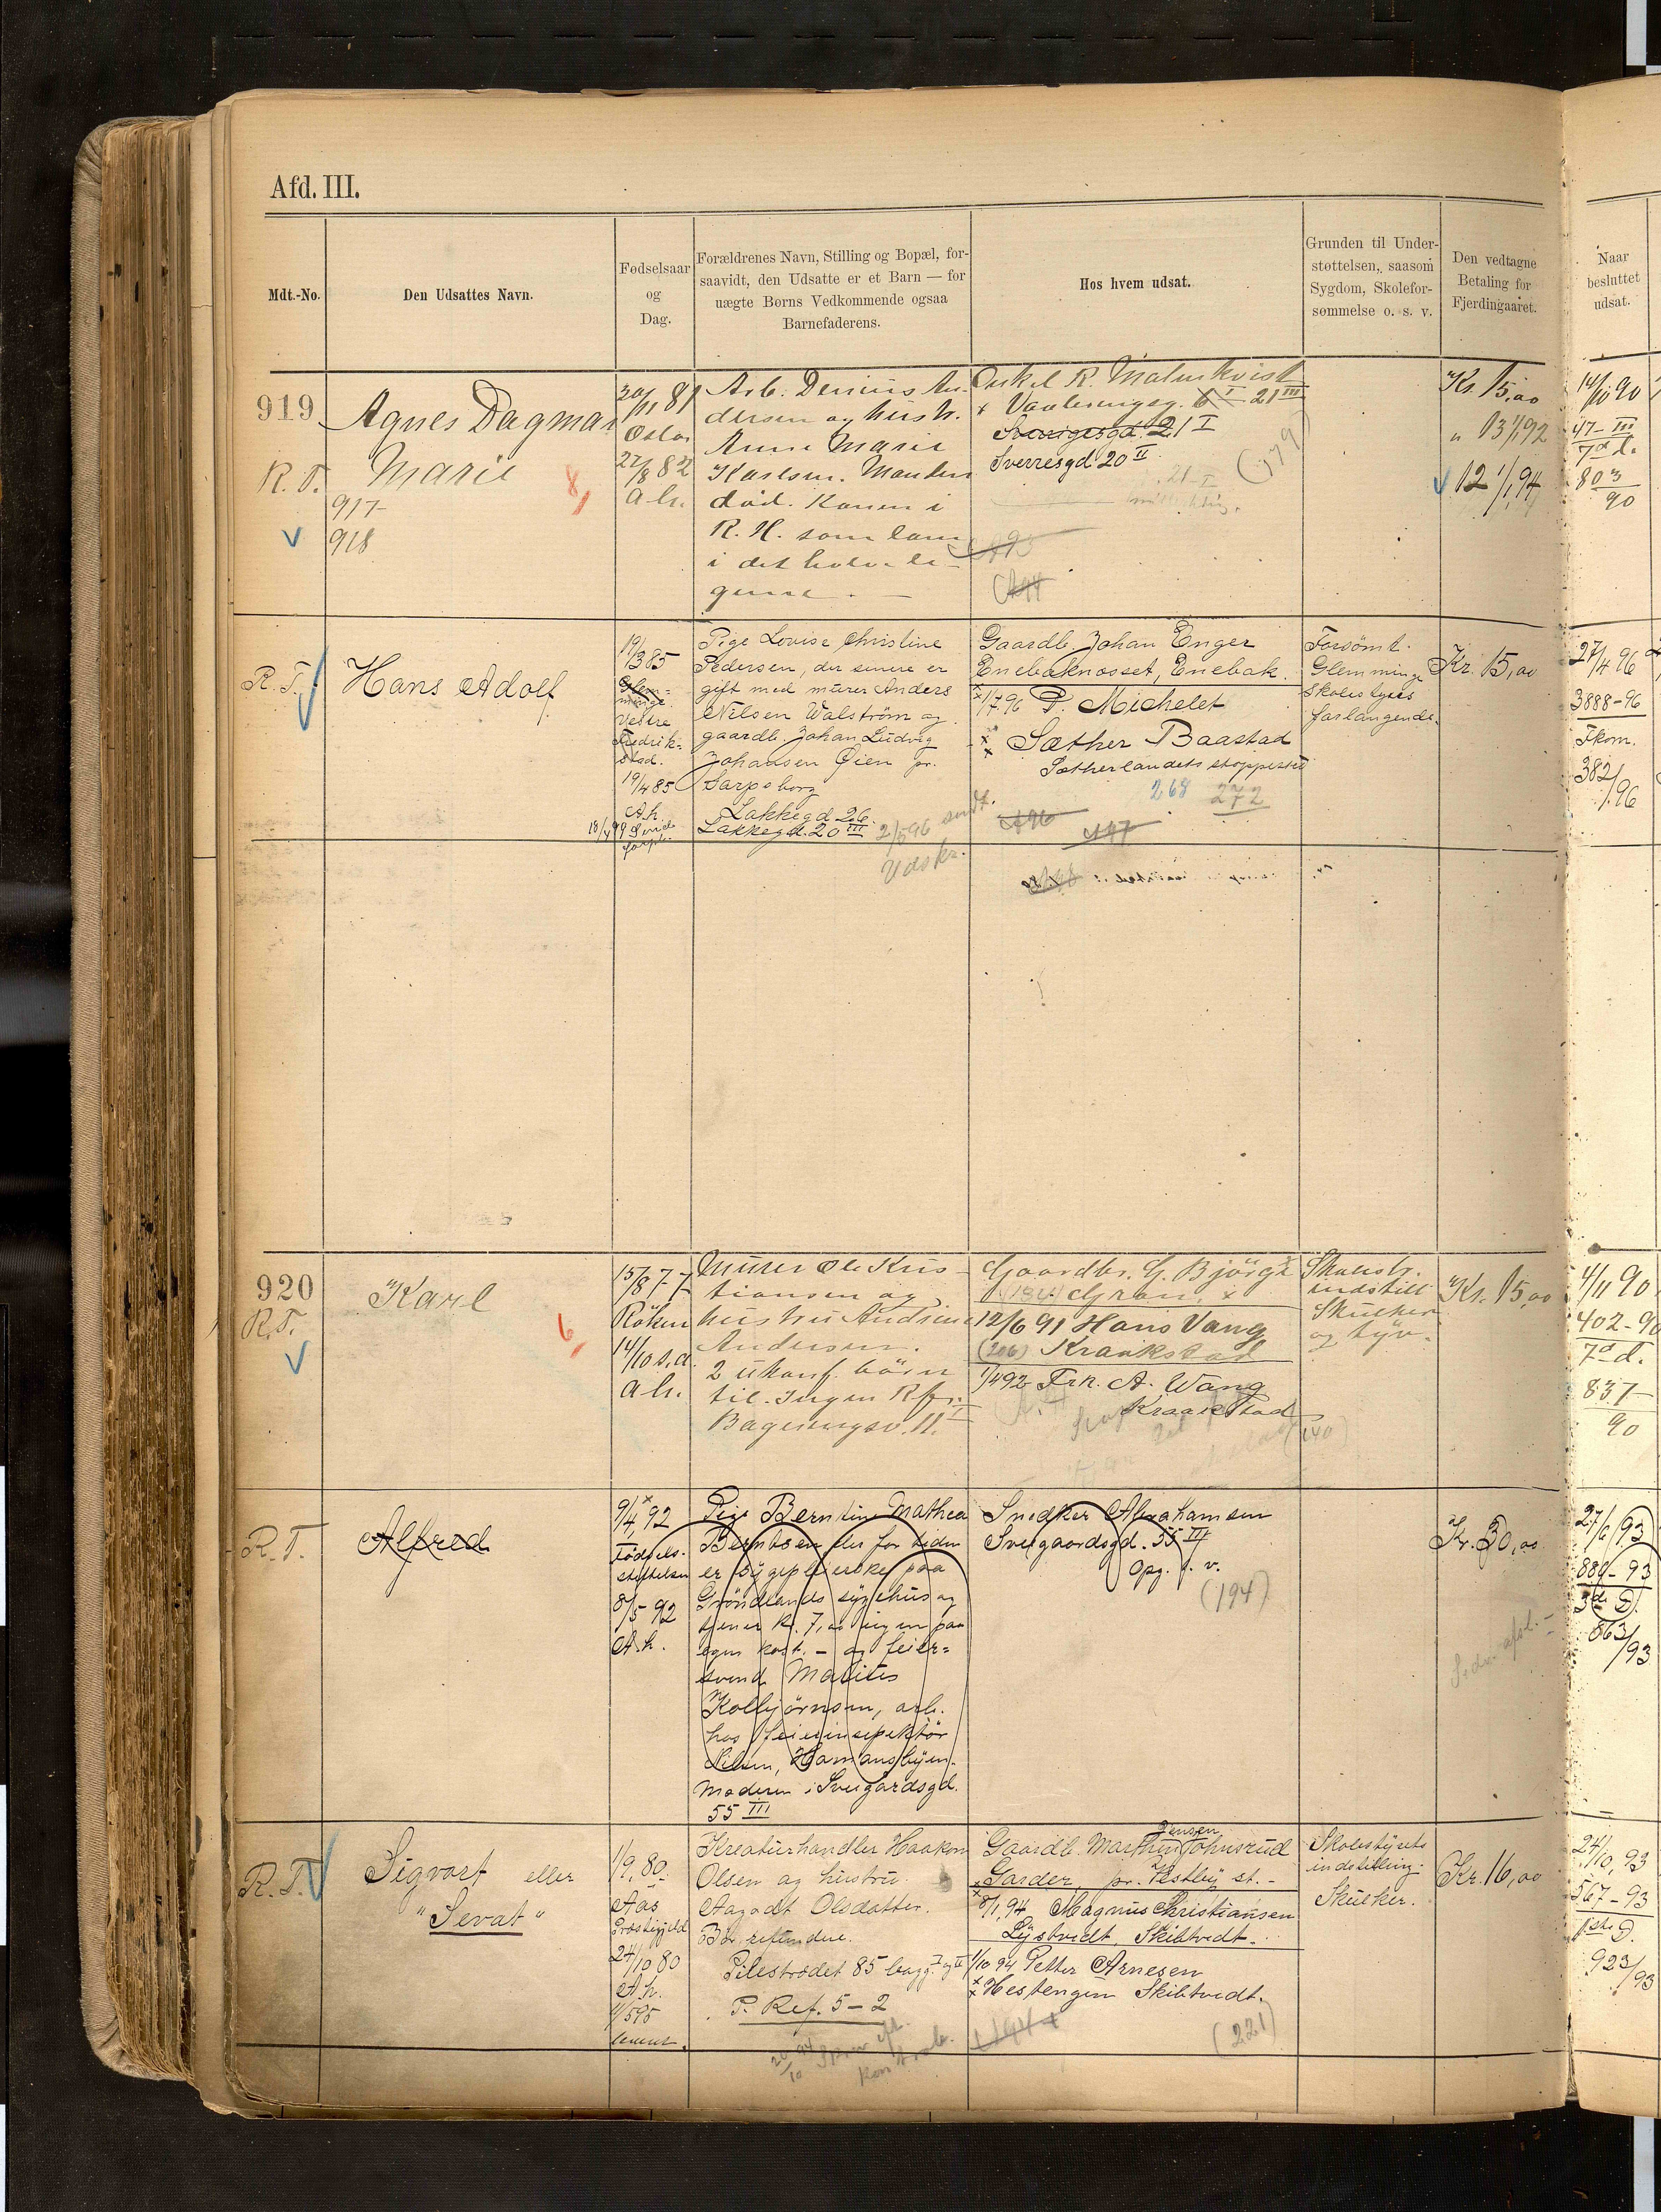 Afd. III.
Mdt.-No.
Den Udsattes Navn.
Fødselsaar
og
Dag.
Forældrenes Navn, Stilling og Bopæl, for-
saavidt, den Udsatte er et Barn — for
uægte Børns Vedkommende ogsaa
Barnefaderens.
Hos hvem udsat.
Grunden til Under-
støttelsen, saasom
Sygdom, Skolefor-
sømmelse o. s. v.
Den vedtagne
Betaling for
Fjerdingaaret.
Naar
besluttet
udsat.
919
R. T.
Agnes Dagmar
Marie
917
918
8,
20/11 81
Oslo
27/8 82
a.h.
Arb. Denius An-
dersen og hustr.
Anne Marie
Karlsen. Manden
död. Konen i
R. H. som lam
i det halve le-
geme. —
Onkel R. Malmkvist
Vaalerengsg. 6 I 21 III
Sverigesgd. 21 I
Sverresgd 20 II
21-I
(179)
Kr. 15,00
" 13 1/1 92
12 1/1 94
14/10 90
47-III
7de d.
803
90
R. T.
Hans Adolf
19/3 85
Glem-
minge
Vestre
Fredrik-
stad.
19/4 85
A.h.
Pige Lovise Christine
Pedersen, der senere er
gift med murer Anders
Nilsen Walström og
gaardb. Johan Ludvig
Johansen Öien pr.
Sarpsborg
Lakkegd 26.
Lakkegd. 20 III
2/5 96 sendt
Udskr.
Gaardb. Johan Enger
Enebaknesset, Enebak.
1/7 96 P. Michelet
Sæther Baastad
Sætherlandets stoppested
268 272
A96
A97
Forsömt.
Glemminge
skolestyres
forlangende.
Kr. 15,00
27/4 96
3888-96
Fkom.
382/96
920
R. T.
Karl
6,
15/8 77
Röken
14/10 s.a.
a.h.
Murer Ole Kris-
tiansen og
hustru Andrine
Andersen.
2 ukonf. börn
til. Ingen Rfr.
Bageringsv. 11. I
Gaardbr. G. Björge
Gran. x
12/6 91 Hans Vang
(206) Kraakstad
1/4 92 Frk. A. Wang
Kraakstad
(140)
Skolestr.
indstill
Skulker
og tyv.
Kr. 15,00
4/11 90
402-90
7de d.
837
90
R. T.
Alfred
9/4 92
Födsels-
stiftelsen
8/5 92
A.h.
Pige Berntine Mathea
Berntsen der for tiden
er sygepleierske paa
Grönlands sygehus og
tjener kr. 7,00 ugen paa
egen kost. — og feier-
svend Mauritz
Kolbjörnsen, arb.
hos feierinspektör
Nilsen, Homansbyen.
Moderen i Sveigardsgd.
55 III
Snedker Abrahamsen
Sveigaardsgd. 55 III
Opg. f. v.
(194)
Kr. 30,00
27/6 93
880-93
3de D.
663/93
R. T.
Sigvart eller
"Sevat"
1/9, 80.
Aas
Præstegjeld
24/10 80
A.h.
4/5 95
Kreaturhandler Haakon
Olsen og hustru
Aagodt Olsdatter.
Bör refundere.
Pilestrædet 85 bagg. I og II
P. Ref. 5-2
Jensen
Gaardb. Marthin Johnsrud
Garder, pr. Vestby st.
8/1, 94 Magnus Christiansen
Lystvedt, Skibtvedt.
1/10 94 Petter Arnesen
Hestengen Skibtvedt.
(221)
Skolestyrets
indstilling.
Skulker.
Kr. 16,00
24/10, 93
567-93
1ste D.
923/93